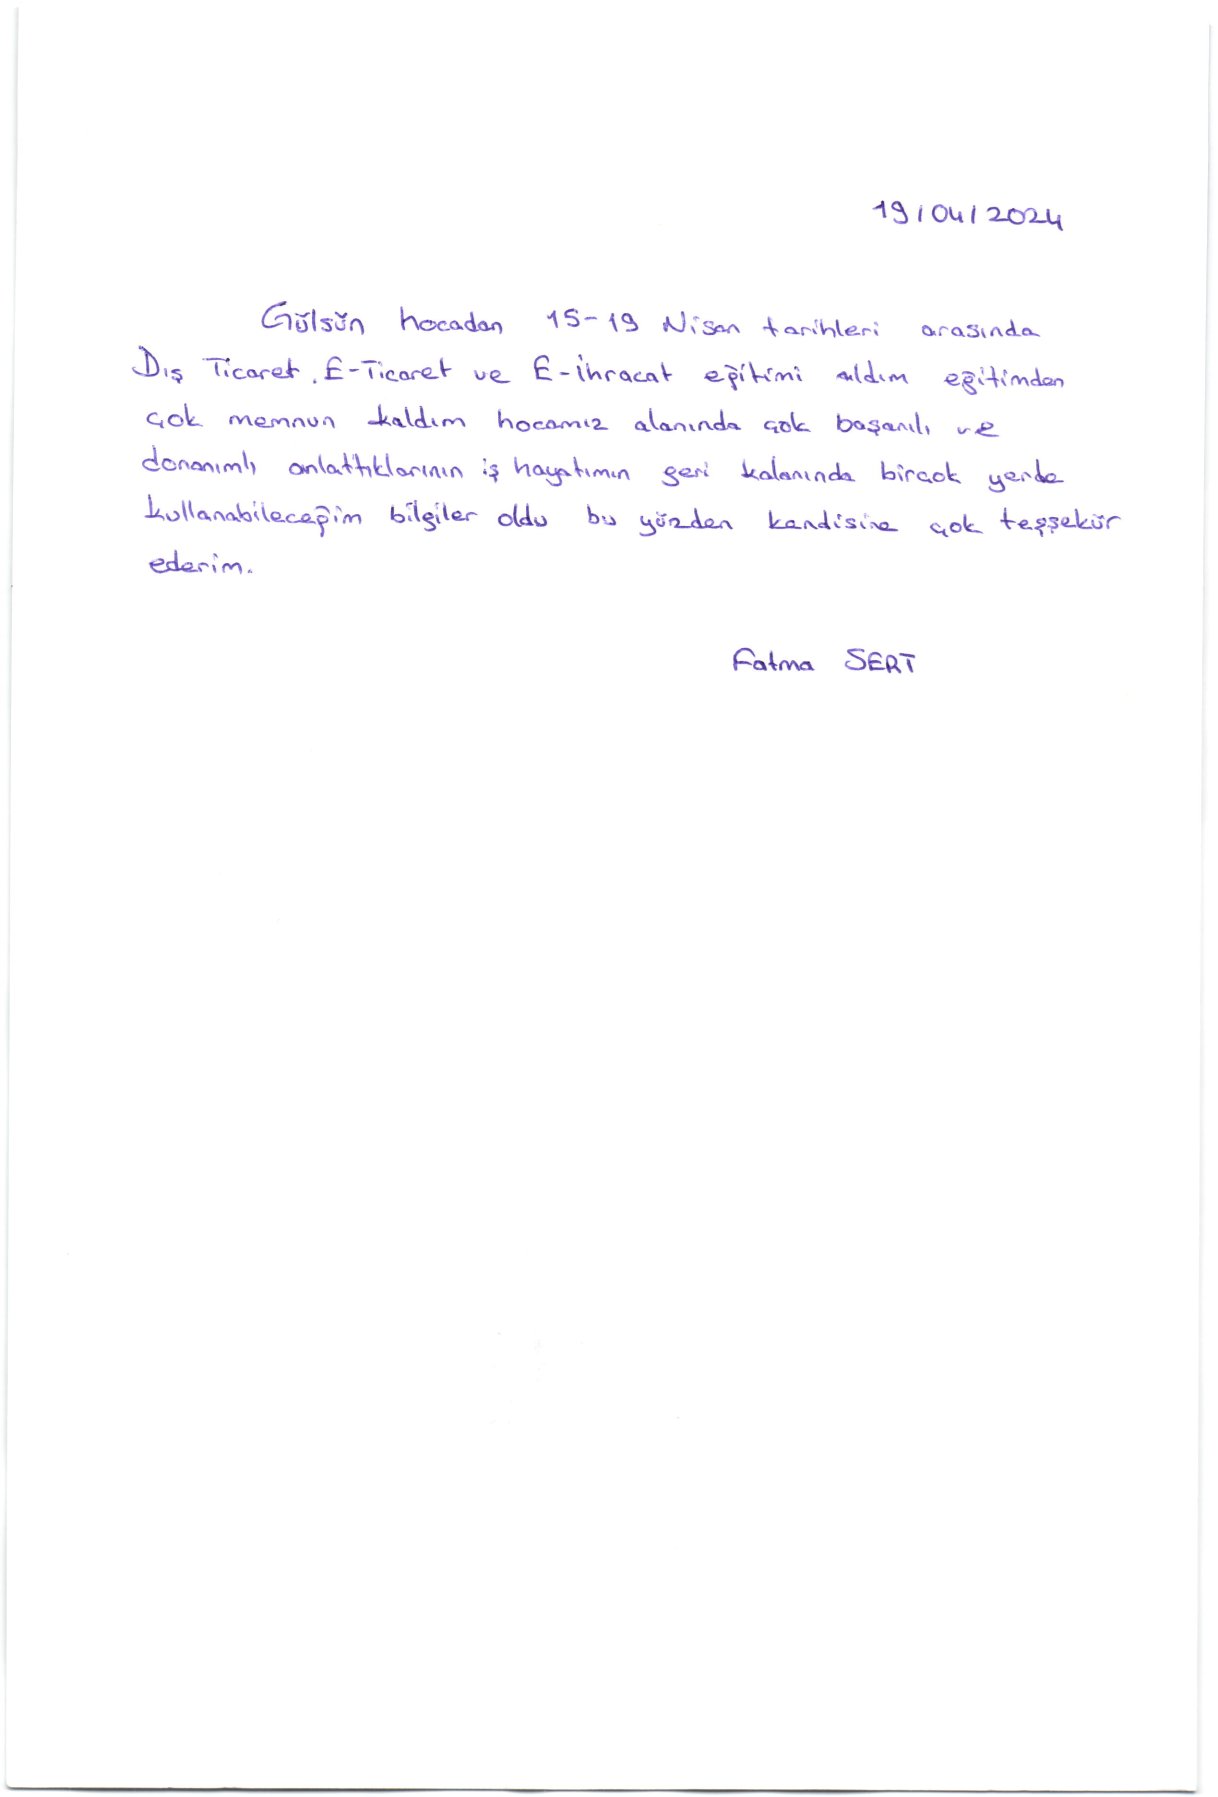 19/04/2024
Gülsün hocadan 15-19 Nisan tarihleri arasında
Dış Ticaret, E-Ticaret ve E-İhracat eğitimi aldım eğitimden
çok memnun kaldım hocamız alanında çok başarılı ve
donanımlı anlattıklarının iş hayatımın geri kalanında birçok yerde
kullanabileceğim bilgiler oldu bu yüzden kendisine çok teşşekür
ederim.
Fatma SERT